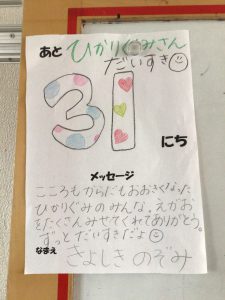 あと ひかりぐみさん
だいすき
31
にち
メッセージ
こころもからだもおおきくなった
ひかりぐみのみんな。えがお
をたくさんみせてくれてありがとう。
ずっとだいすきだよ
なまえ さよしき のぞみ